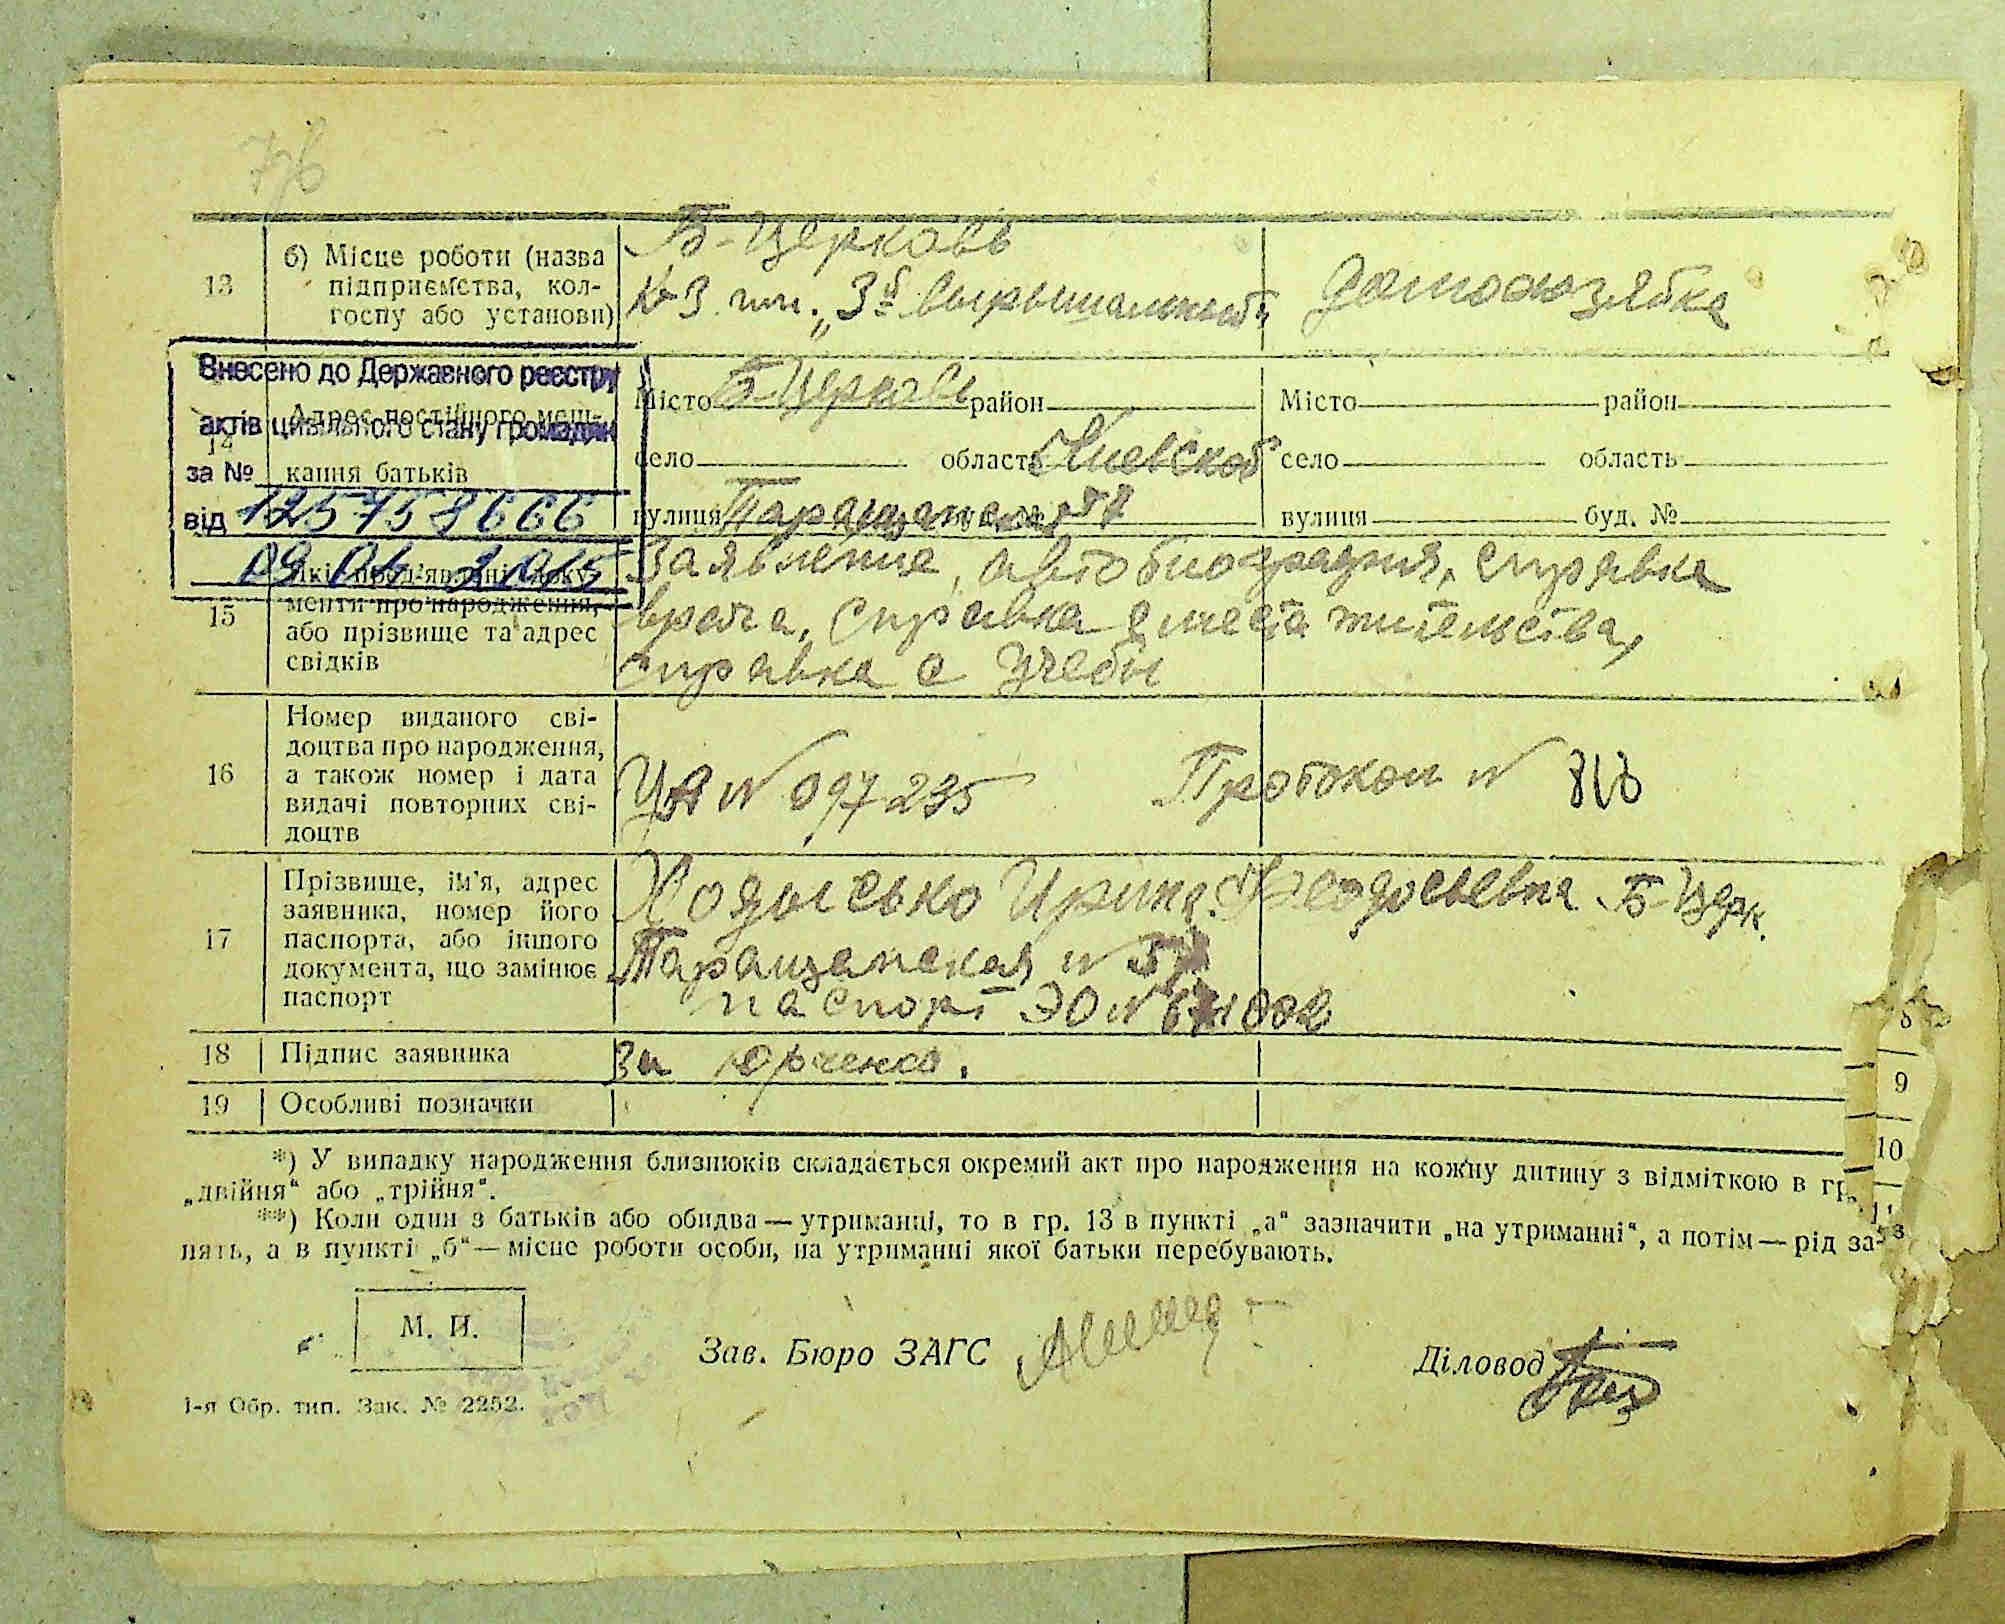 76
13
б) Місце роботи (назва
підприємства, кол-
госпу або установи)
Б-Церковь
К-З им. „3й
домохозяйка
Внесено до Державного реєстру
актів цивільного стану громадян
за №
від 1257158666
2015
14
Адрес постійного меш-
кання батьків
Місто Б-Церковь район
село область Киевской
вулиця Таращанская 57
Місто район
село область
вулиця буд. №
15
Які пред'явлені доку-
менти про народження,
або прізвище та адрес
свідків
Заявление, автобиография, справка
врача, справка с места жительства,
справка с учебы
16
Номер виданого сві-
доцтва про народження,
а також номер і дата
видачі повторних сві-
доцтв
ЦЯ № 097235
Протокол №
17
Прізвище, ім'я, адрес
заявника, номер його
паспорта, або іншого
документа, що замінює
паспорт
Ирина Феодосьевна Б-Церк.
Таращанская № 57
паспорт ЭО №
18
Підпис заявника
За Юрченко.
19
Особливі позначки
*) У випадку народження близнюків складається окремий акт про народження на кожну дитину з відміткою в гр.
„двійня“ або „трійня“.
**) Коли один з батьків або обидва — утриманці, то в гр. 13 в пункті „а“ зазначити „на утриманні“, а потім — рід за-
нять, а в пункті „б“ — місце роботи особи, на утриманні якої батьки перебувають.
М. П.
Зав. Бюро ЗАГС
Діловод
1-я Обр. тип. Зак. № 2252.
8
9
10
11